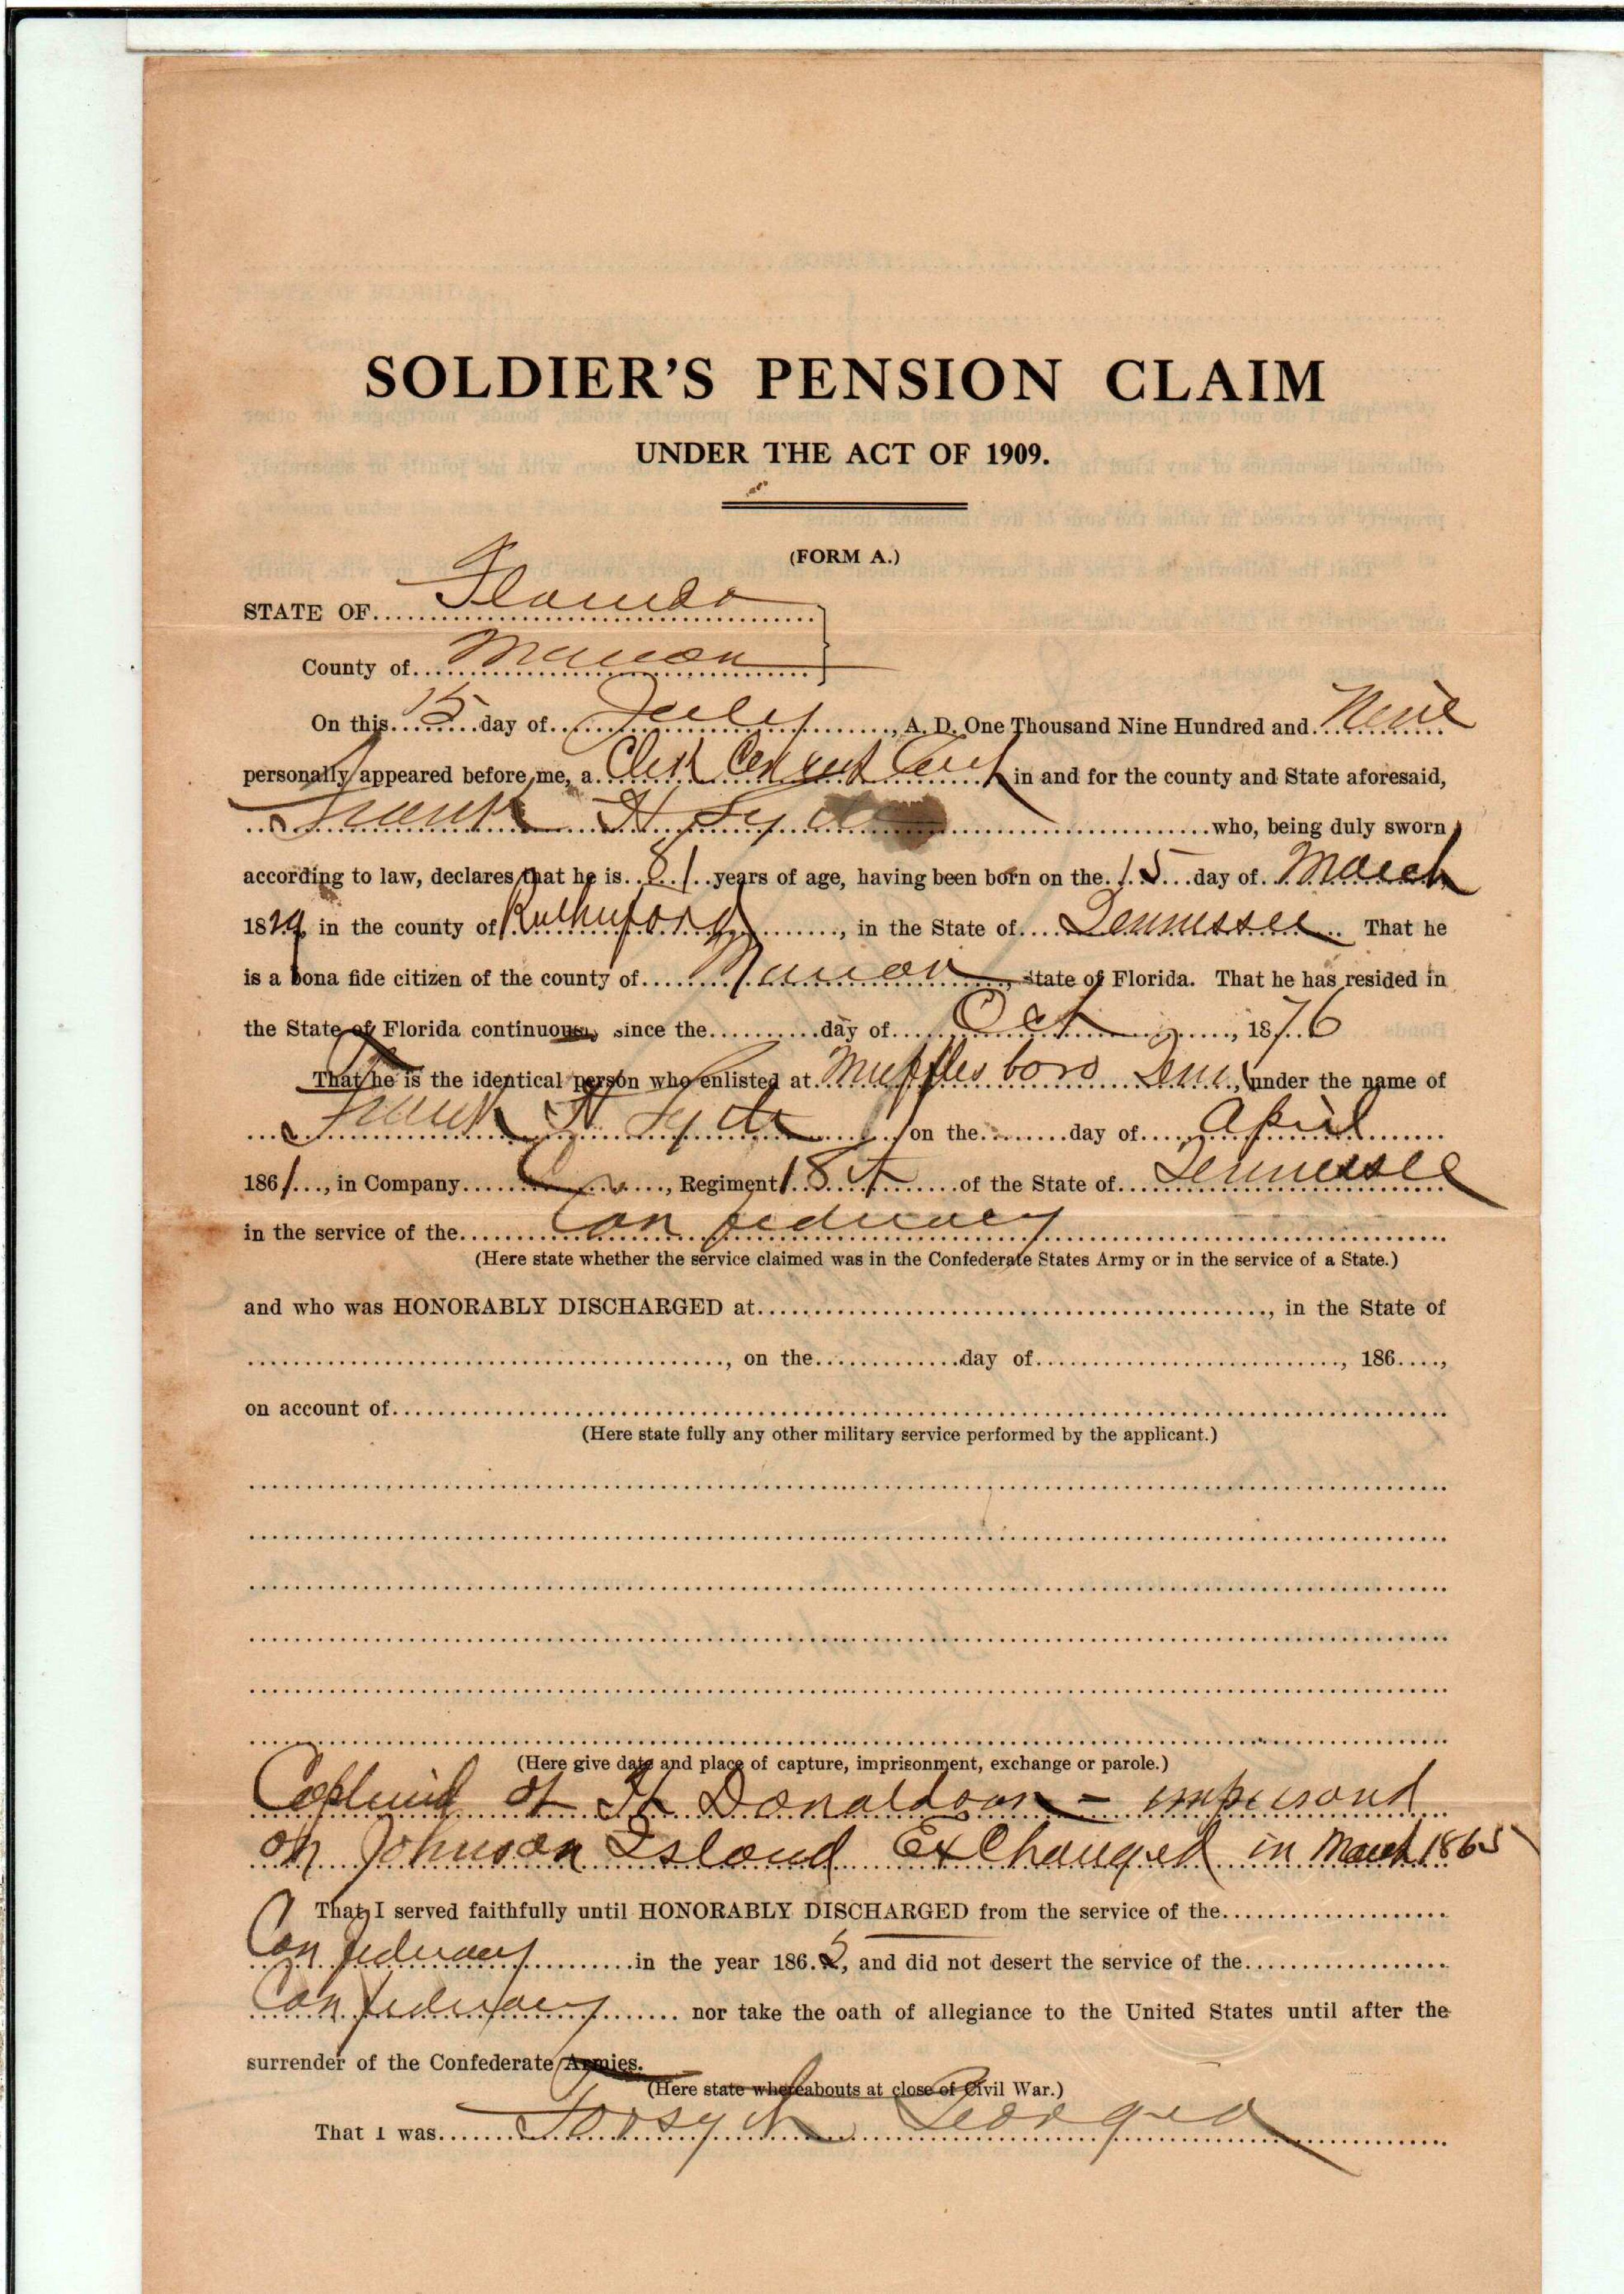 SOLDIER'S PENSION CLAIM
UNDER THE ACT OF 1909.
(FORM A.)
STATE OF Florida
County of Marion
On this 15 day of July, A. D. One Thousand Nine Hundred and Nine
personally appeared before me, a Clerk Circuit Court in and for the county and State aforesaid,
Frank H Lytle who, being duly sworn
according to law, declares that he is 81 years of age, having been born on the 15 day of March
1829, in the county of Rutherford, in the State of Tennessee That he
is a bona fide citizen of the county of Marion, State of Florida. That he has resided in
the State of Florida continuously since the day of Oct, 1876
That he is the identical person who enlisted at Murflesboro Tenn, under the name of
Frank H Lytle on the day of April
1861, in Company, Regiment 18 of the State of Tennessee
in the service of the Confederacy
(Here state whether the service claimed was in the Confederate States Army or in the service of a State.)
and who was HONORABLY DISCHARGED at, in the State of
, on the day of, 186,
on account of
(Here state fully any other military service performed by the applicant.)
(Here give date and place of capture, imprisonment, exchange or parole.)
Captured at Ft Donaldson - imprisond
on Johnson Island Exchanged in March 1865
That I served faithfully until HONORABLY DISCHARGED from the service of the
Confederacy in the year 1865, and did not desert the service of the
Confederacy nor take the oath of allegiance to the United States until after the
surrender of the Confederate Armies.
(Here state whereabouts at close of Civil War.)
That I was Forsyth Georgia